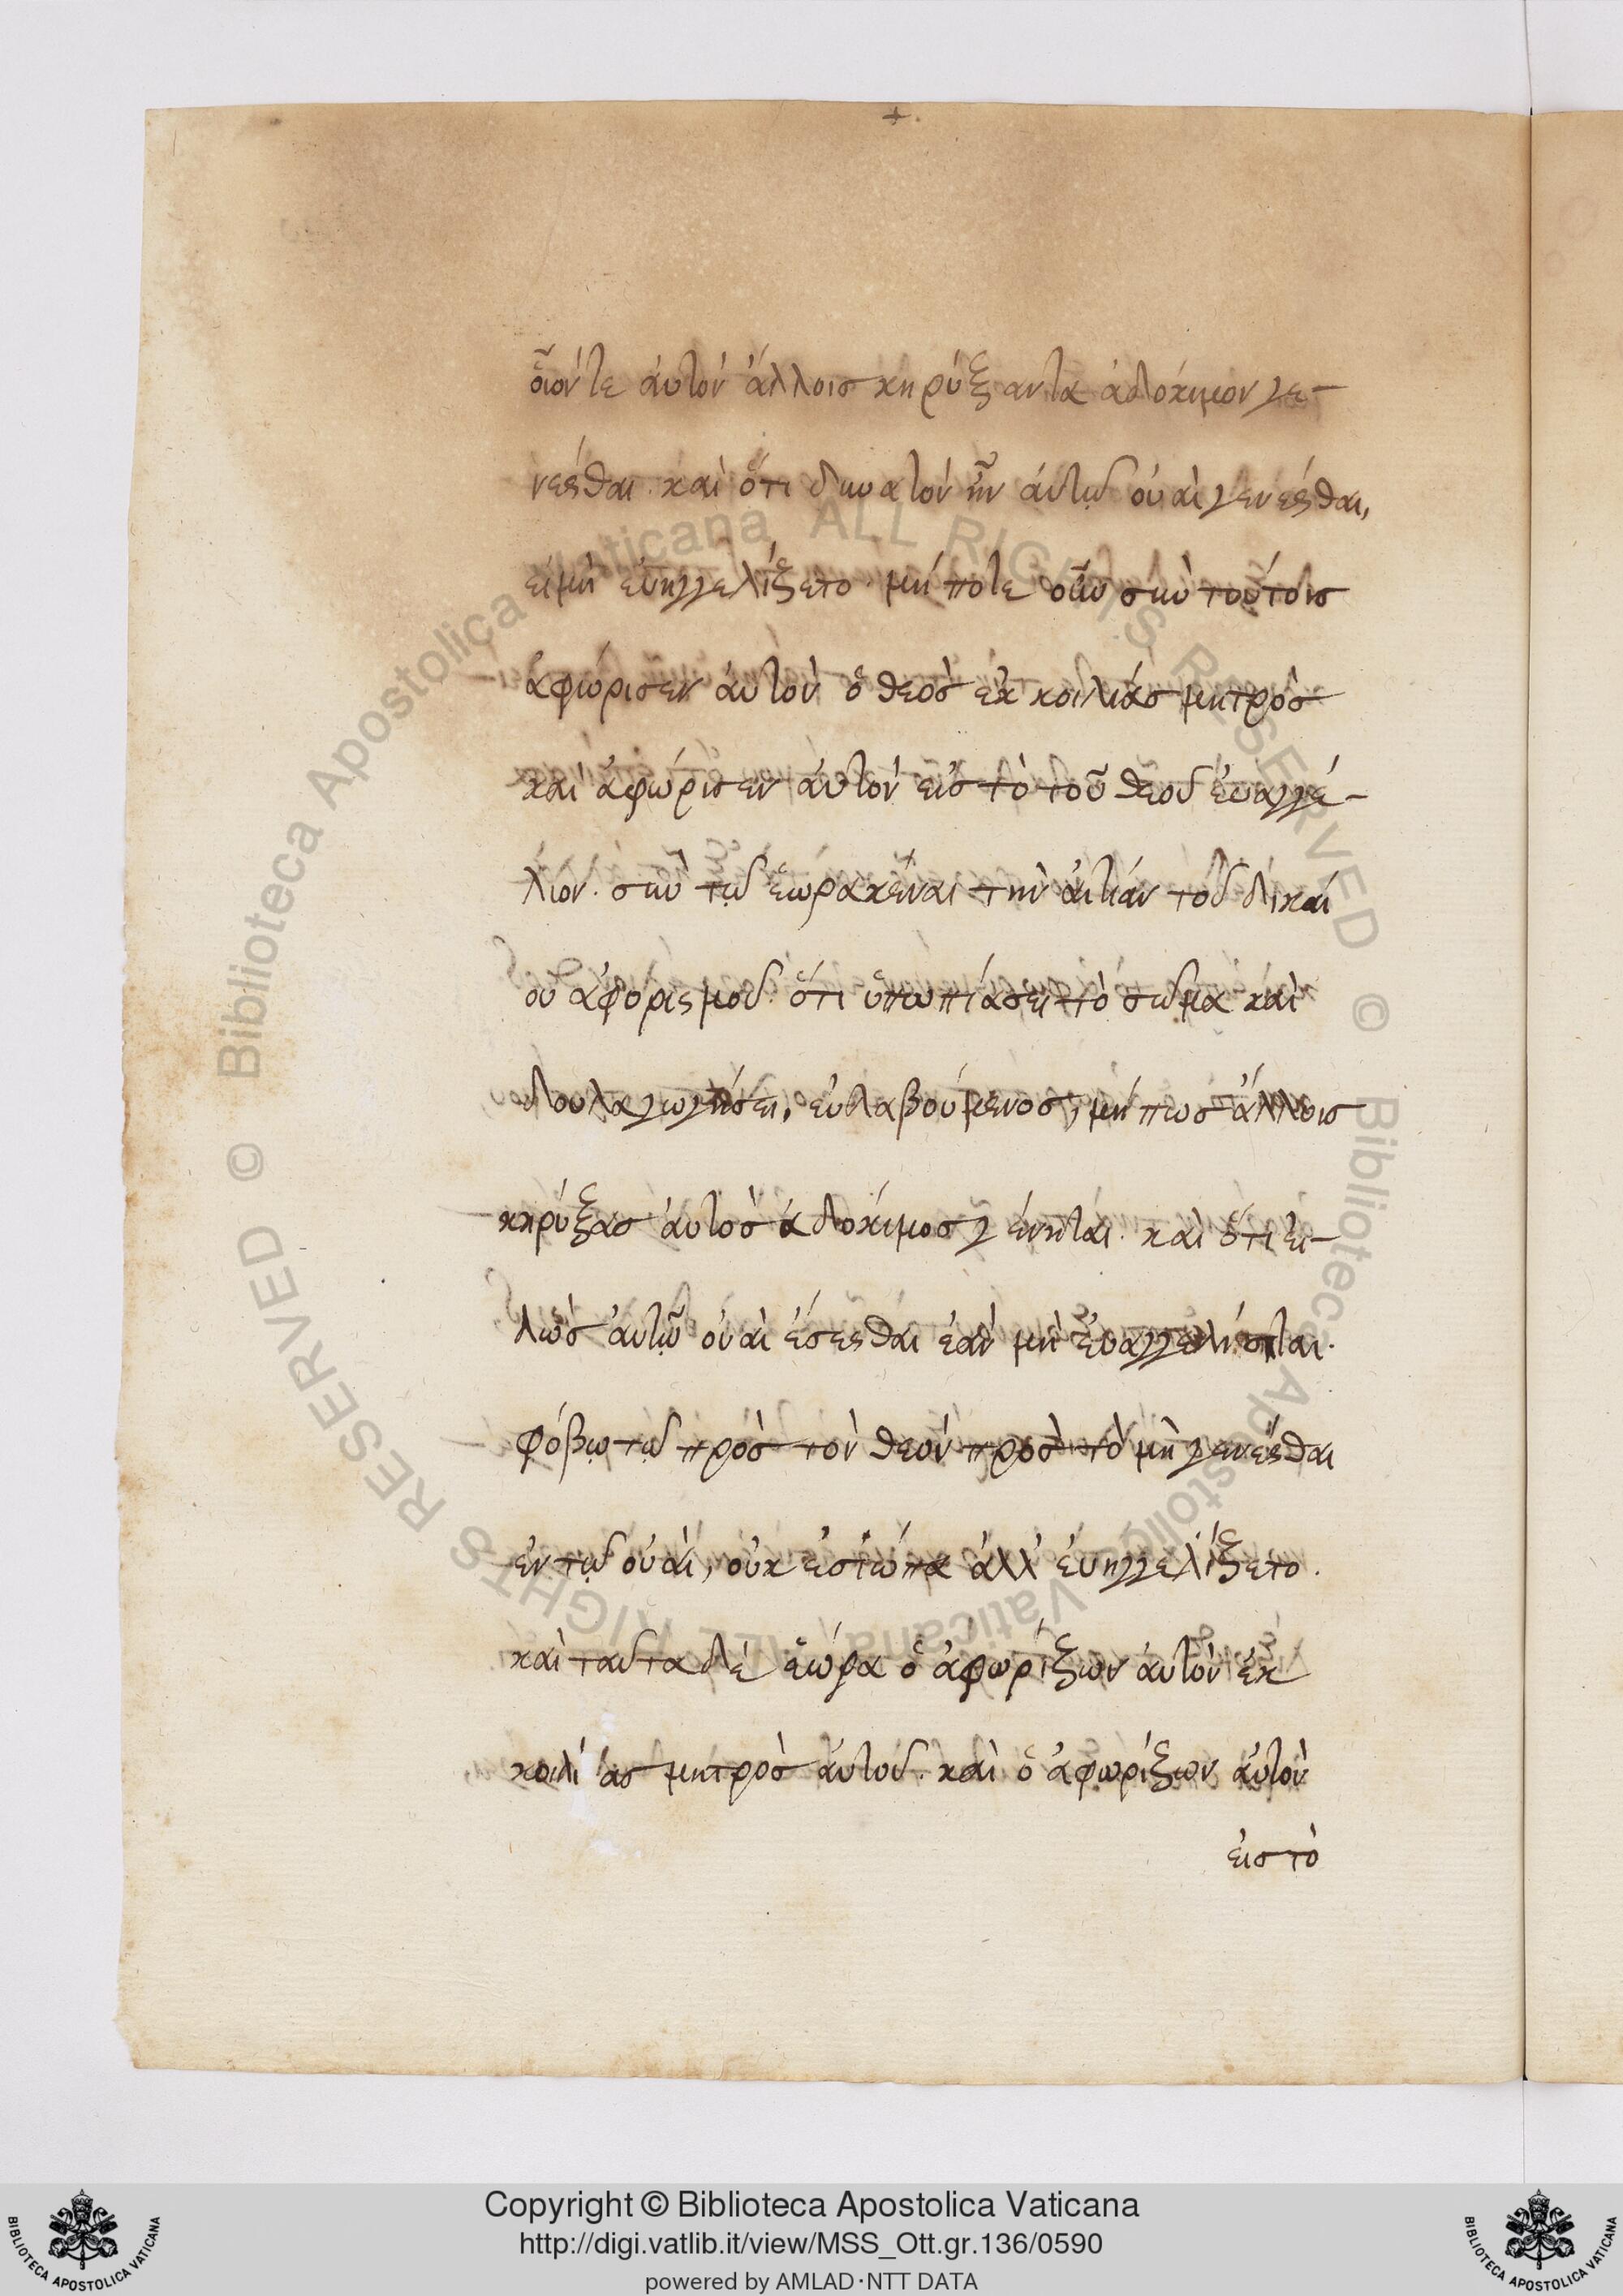 οἷόντε ἀυτὸν ἄλλοις κηρύξαντα ἀδόκιμον γε-
νέσθαι. καὶ ὅτι δυνατὸν ἦν ἀυτῷ οὐαὶ γενέσθαι,
εἰμὴ ἐυηγγελίζετο. μήποτε οὖν σὺν τούτοις
ἀφώρισεν ἀυτὸν ὁ θεὸς ἐκ κοιλίας μητρὸς
καὶ ἀφώρισεν ἀυτὸν εἰς τὸ τοῦ θεοῦ ἐυαγγέ-
λιον. σὺν τῷ ἑωρακέναι τὴν ἀιτίαν τοῦ δικαί
ου ἀφορισμοῦ. ὅτι ὑπωπιάσει τὸ σῶμα καὶ
δουλαγωγήσει, εὐλαβούμενος, μήπως ἄλλοις
κηρύξας ἀυτὸς ἀδόκιμος γένηται. καὶ ὅτι εἰ-
δὼς ἀυτῷ οὐαὶ ἔσεσθαι ἐὰν μὴ ἐυαγγελίσηται.
φόβῳ τῷ πρὸς τὸν θεὸν πρὸς τὸ μὴ γενέσθαι
ἐν τῷ οὐαὶ, οὐκ ἐσιώπα ἀλλ' ἐυηγγελίζετο.
καὶ ταῦτα δὲ ἑώρα ὁ ἀφωρίζων ἀυτὸν ἐκ
κοιλίας μητρὸς ἀυτοῦ. καὶ ὁ ἀφωρίζων ἀυτὸν
εἰς τὸ
Copyright © Biblioteca Apostolica Vaticana
http://digi.vatlib.it/view/MSS_Ott.gr.136/0590
powered by AMLAD·NTT DATA
BIBLIOTECA APOSTOLICA VATICANA
BIBLIOTECA APOSTOLICA VATICANA
© Biblioteca Apostolica Vaticana ALL RIGHTS RESERVED
© Biblioteca Apostolica Vaticana ALL RIGHTS RESERVED